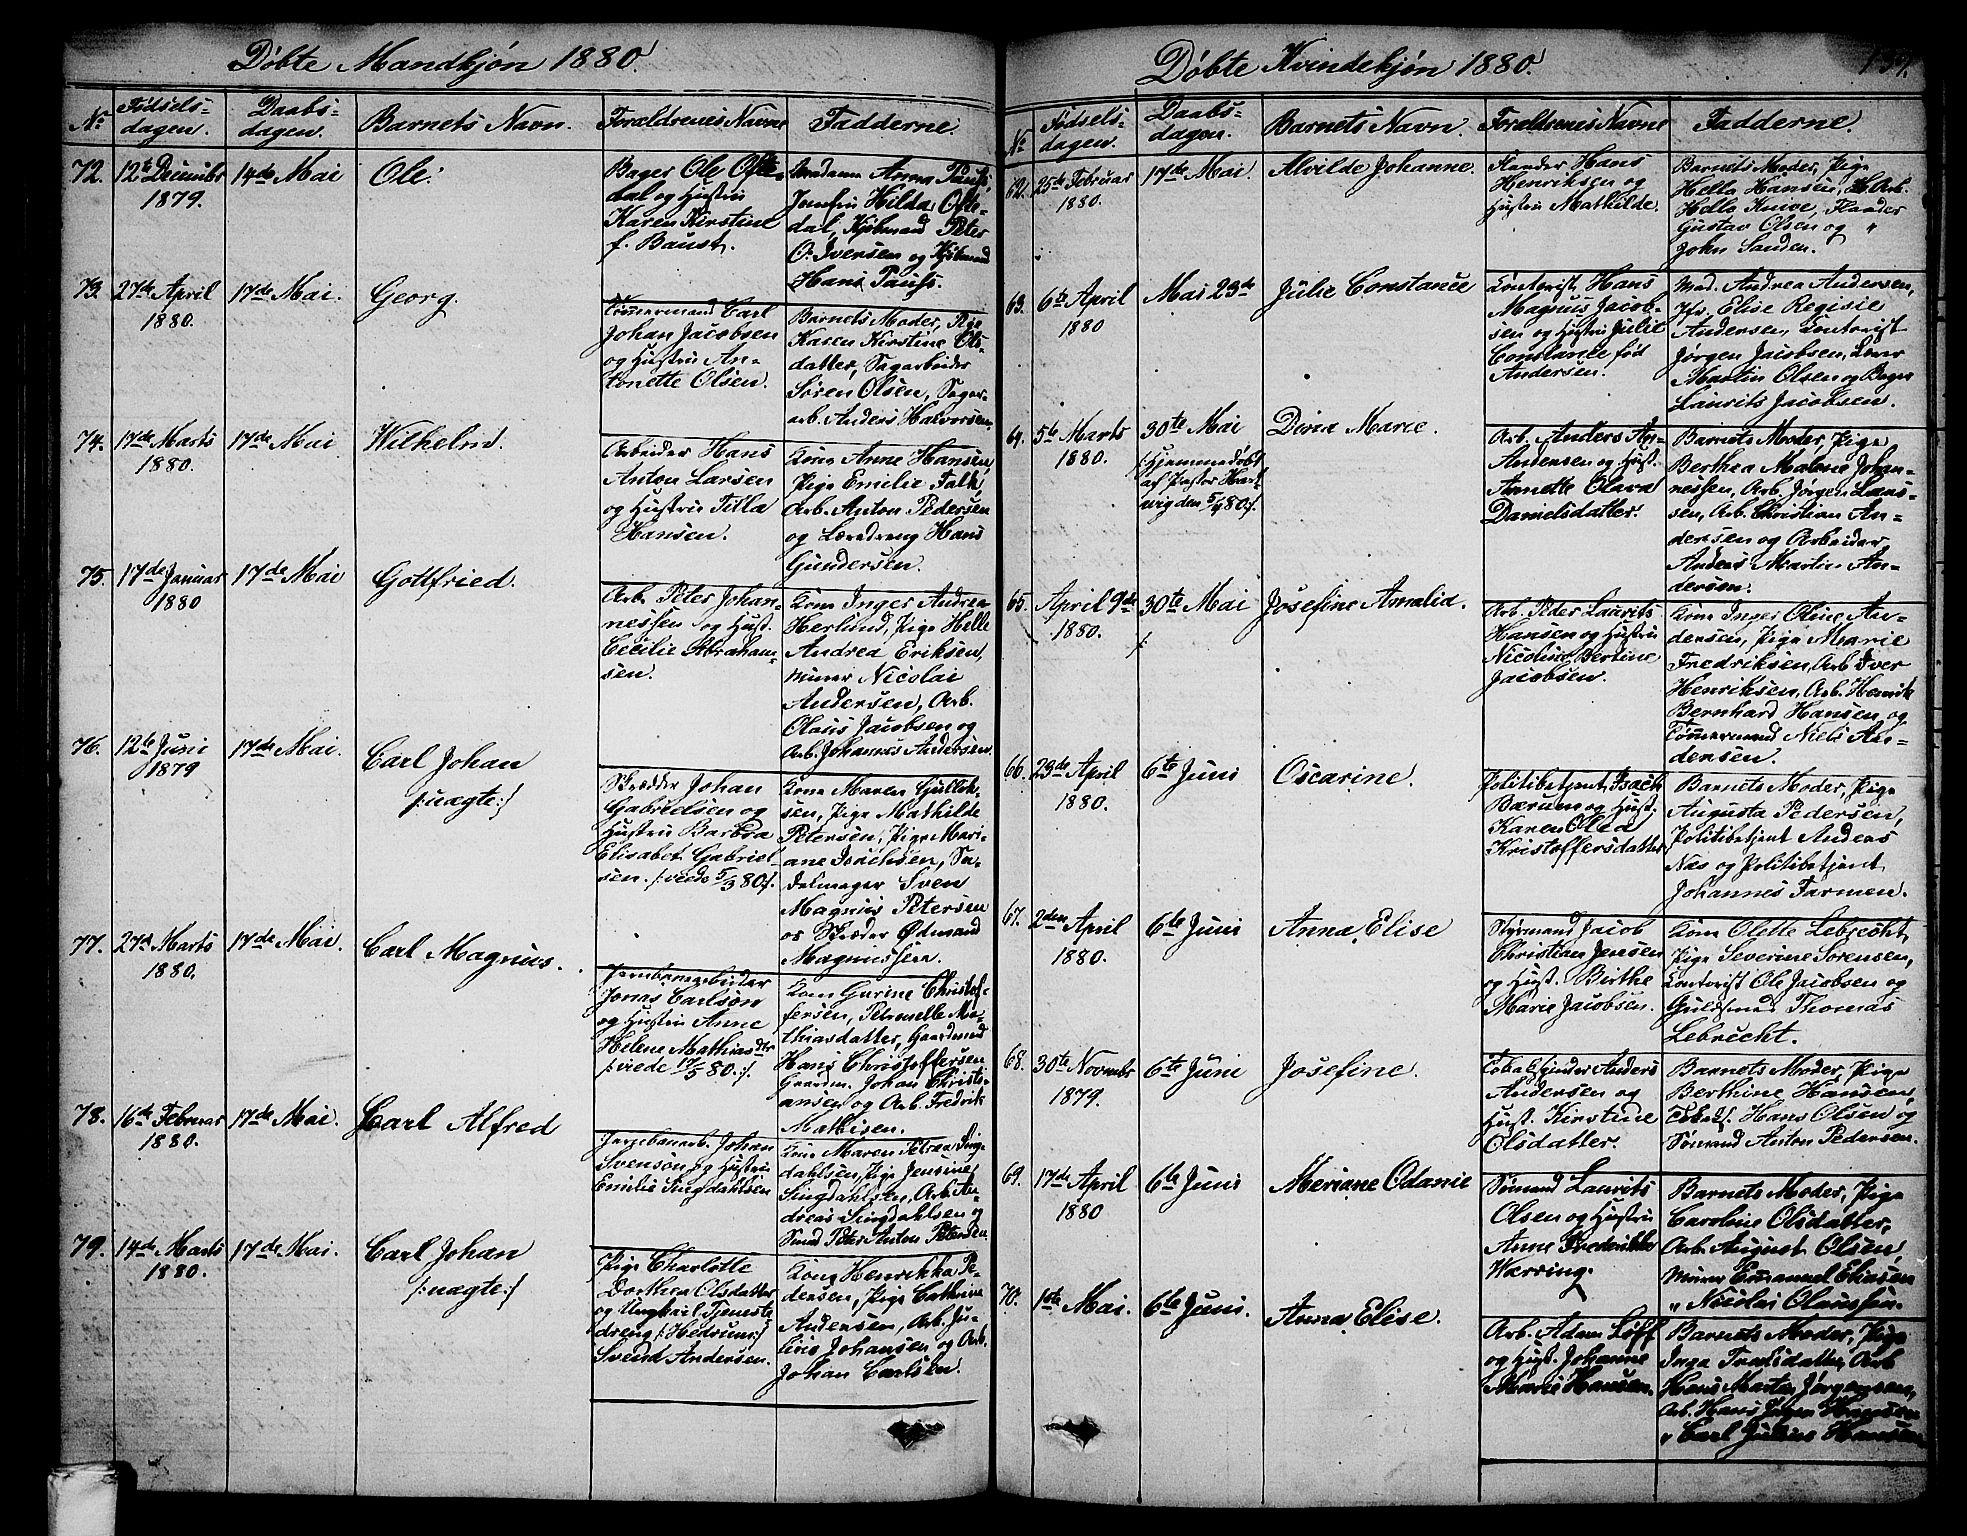 Døbte Mandkjøn 1880.
Nr.
Fødsels-
dagen.
Daabs-
dagen.
Barnets Navn.
Forældrenes Navne
Fadderne.
72.
12te Decembr
1879.
14de Mai
Ole.
Bager Ole Ofte-
dal og Hustru
Karen Kirstine
f. Baust.
Madam Anna Pauss,
Jomfru Hilda Ofte-
dal, Kjøbmand Peter
O. Iversen og Kjøbmand
Hans Pauss.
73.
27de April
1880.
17de Mai.
Georg.
Tømmermand Carl
Johan Jacobsen
og Hustru An-
tonette Olsen.
Barnets Moder, Pige
Karen Kirstine Ols-
datter, Sagarbeider
Søren Olsen, Sager-
arb. Anders Halvorsen.
74.
17de Marts
1880.
17de Mai
Wilhelm.
Arbeider Hans
Anton Larsen
og Hustru Tilla
Hansen.
Kone Anne Hansen,
Pige Emilie Falk,
Arb. Anton Pedersen
og Læredreng Hans
Gundersen.
75.
17de Januar
1880
17de Mai
Gottfried.
Arb. Peter Johan-
nessen og Hust.
Cecilie Abraham-
sen.
Kone Inger Andrea
Herlund, Pige Helle
Andrea Eriksen,
Murer Nicolai
Andersen, Arb.
Olaus Jacobsen og
Arb. Johannes Andersen.
76.
12te Juni
1879
17de Mai.
Carl Johan
/:uægte:/
Skrædder Johan
Gabrielsen og
Hustru Barbra
Elisabet Gabriel-
sen. /:viede 5/3 80:/.
Kone Maren Gullik-
sen, Pige Mathilde
Petersen, Pige Mari-
ane Isachsen, Sa-
delmager Sven
Magnus Petersen
og Skræder Ødmand
Magnussen.
77.
27de Marts
1880.
17de Mai.
Carl Magnus.
Jernbanearbeider
Jonas Carlson
og Hustru Anne
Helene Mathiasdtr
/:viede 17/5 80.:/.
Kone Gurine Christof-
fersen, Petronelle Ma-
thiasdatter, Gaardmand
Hans Christoffersen
Gaardm. Johan Christi-
ansen og Arb. Fredrik
Mathisen.
78.
16de Februar
1880.
17de Mai.
Carl Alfred
Jernbanearb. Johan
Svenson og Hustru
Emilie Lingdahlsen
Kone Maren Petrea Ling-
dahlsen, Pige Jensine
Lingdahlsen, Arb. An-
dreas Lingdahlsen og
Smed Peter Anton Petersen
79.
14de Marts
1880.
17de Mai.
Carl Johan
/:uægte:/
Pige Charlotte
Dorthea Olsdatter
og Ungkarl Tjeneste
dreng /:Hedrum:/
Svend Andersen.
Kone Henrikka Pe-
dersen, Pige Cathrine
Andersen, Arb. Ju-
lius Johansen og Arb.
Johan Carlsen.
Døbte Kvindekjøn 1880.
137.
Nr
Fødsels-
dagen.
Daabs-
dagen.
Barnets Navn.
Forældrenes Navne
Fadderne.
62.
25de Februar
1880.
17de Mai.
Alvilde Johanne.
Flander Hans
Henriksen og
Hustru Mathilde.
Barnets Moder, Pige
Helle Hansen, H. Arb.
Helle Knive, Flander
Gustav Olsen og "
John Sanden.
63.
6te April
1880
Mai 23de
Julie Constance
Kontorist Hans
Magnus Jacob-
sen og Hustru Julie
Constance fød
Andersen.
Mad. Andrea Andersen,
Jfr. Elise Regisie
Andersen, Kontorist
Jørgen Jacobsen, Lærer
Martin Olsen og Bager
Laurits Jacobsen.
64.
5te Marts
1880.
30te Mai
/:Hjemmedøbt
af Pastor Hart-
vig den 5/4 80:/.
Dina Marie.
Arb. Anders An-
Andersen og Hust.
Annette Olava
Danielsdatter.
Barnets Moder, Pige
Berthea Malene Johan-
nessen, Arb. Jørgen Lars-
sen, Arb. Christian An-
dersen og Arbeider
Anders Martin An-
dersen.
65.
April 9de
1880.
30te Mai
/:
Josefine Amalia.
Arb. Peder Laurits
Hansen og Hustru
Nicoline Bertine
Jacobsen.
Kone Inger Oline An-
dersen, Pige Marie
Fredriksen, Arb. Iver
Henriksen, Arb. Henrik
Bernhard Hansen, og
Tømmermand Niels An-
dersen.
66.
23de April
1880.
6te Juni
Oscarine.
Politibetjent Isach
Bærum og Hust.
Karen Olea
Kristoffersdatter
Barnets Moder, Pige
Augusta Pedersen,
Politibetjent Anders
Næs og Politibetjent
Johannes Farmen.
67.
2den April
1880.
6te Juni
Anna Elise
Styrmand Jacob
Christian Jensen
og Hust. Birthe
Marie Jacobsen.
Kone Olette Lebrecht,
Pige Severine Sørensen,
Kontorist Ole Jacobsen og
Guldsmed Thomas
Lebrecht.
68.
30te Novembr
1879.
6te Juni
Josefine.
Tobaksspinder Anders
Andersen og
Hust. Kirstine
Olsdatter.
Barnets Moder, Pige
Berthine Hansen,
Tobaksf. Hans Olsen og
Sømand Anton Pedersen.
69.
17de April
1880
6te Juni
Meriane Odanie
Sømand Laurits
Olsen og Hustru
Anne Fredrikke
Wærring.
Barnets Moder, Pige
Caroline Olsdatter,
Arb. August Olsen,
Murer Emanuel Eliasen
" Nicolai Olaussen.
70.
1ste Mai.
6te Juni.
Anna Elise.
Arb. Adam Løff
og Hust. Johanne
Marie Hansen.
Barnets Moder, Pige
Inga Truelsdatter, Arb
Hans Martin Jørgensen,
Arb. Hans Jørgen Hansen
" Carl Julius Hansen